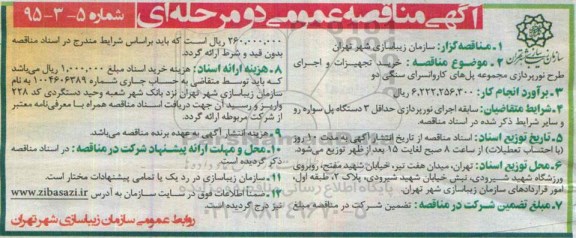 آگهی مناقصه عمومی دو مرحله‌ای شماره ۵-۳-۹۵
سازمان زیباسازی شهر تهران
۱ـ مناقصه‌گزار: سازمان زیباسازی شهر تهران
۲ـ موضوع مناقصه: خرید تجهیزات و اجرای
طرح نورپردازی مجموعه پل‌های کاروانسرای سنگی دو
۳ـ برآورد انجام کار: ۶,۲۲۲,۲۵۶,۳۰۰ ریال
۴ـ شرایط متقاضیان: سابقه اجرای نورپردازی حداقل ۳ دستگاه پل سواره رو
و سایر شرایط ذکر شده در اسناد مناقصه.
۵ـ تاریخ توزیع اسناد: اسناد مناقصه از تاریخ انتشار آگهی بمدت ۱۰ روز
(با احتساب تعطیلات) از ساعت ۸ صبح لغایت ۱۵ بعد از ظهر توزیع می‌شود.
۶ـ محل توزیع اسناد: تهران، میدان هفت تیر، خیابان شهید مفتح، روبروی
ورزشگاه شهید شیرودی، نبش خیابان شهید شیرودی، پلاک ۲، طبقه اول،
امور قراردادهای سازمان زیباسازی شهر تهران.
۷ـ مبلغ تضمین شرکت در مناقصه: تضمین شرکت در مناقصه مبلغ
۲۶۰,۰۰۰,۰۰۰ ریال است که باید براساس شرایط مندرج در اسناد مناقصه
بدون قید و شرط ارائه گردد.
۸ـ هزینه ارائه اسناد: هزینه خرید اسناد مبلغ ۱,۰۰۰,۰۰۰ ریال می‌باشد
که باید توسط متقاضی به حساب جاری شماره ۱۰۰۴۶۰۶۳۸۹ به نام
سازمان زیباسازی شهر تهران نزد بانک شهر شعبه وحید دستگردی کد ۲۲۸
واریز و رسید آن جهت دریافت اسناد مناقصه همراه با معرفی‌نامه معتبر
از شرکت مربوطه ارائه گردد.
۹ـ هزینه انتشار آگهی به عهده برنده مناقصه می‌باشد.
۱۰ـ محل و مهلت ارائه پیشنهاد شرکت در مناقصه: در اسناد مناقصه
ذکر گردیده است.
۱۱ـ سازمان زیباسازی در رد یک یا تمامی پیشنهادات مختار است.
۱۲ـ ضمنا اطلاعات فوق در سایت سازمان به آدرس www.zibasazi.ir
نیز درج گردیده است.
روابط عمومی سازمان زیباسازی شهر تهران